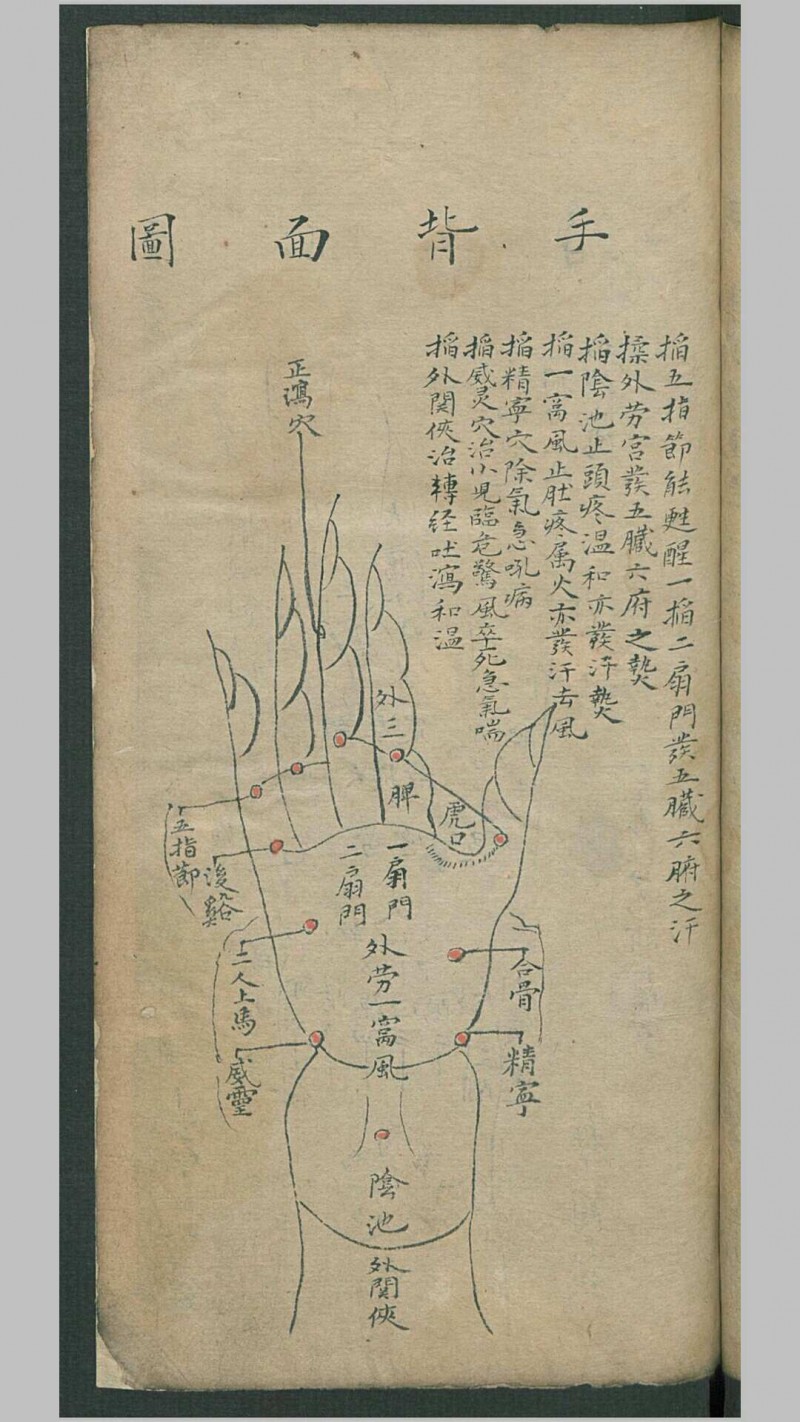 手背面圖
掐五指節能甦醒一掐二扇門發五臟六腑之汗
揉外劳宫發五臟六府之热
掐陰池止頭疼温和亦發汗热
掐一窩風止肚疼属火亦發汗去風
掐精寧穴除氣急吼病
掐威灵穴治小児臨危驚風卒死急氣喘
掐外関侠治轉経吐瀉和温
正瀉穴
外三
脾
虎口
五指節
後谿
一扇門
二扇門
外劳
一窩風
二人上馬
威靈
合骨
精寧
陰池
外関侠